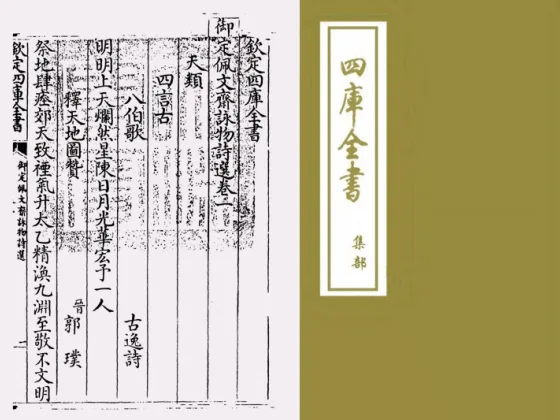 四庫全書
集部
欽定四庫全書
御定佩文齋詠物詩選卷一
天類
四言古
八伯歌 古逸詩
明明上天爛然星陳日月光華宏予一人
釋天地圖贊 晉 郭璞
祭地肆瘞郊天致禋氣升太乙精渙九淵至敬不文明
欽定四庫全書 御定佩文齋詠物詩選 一